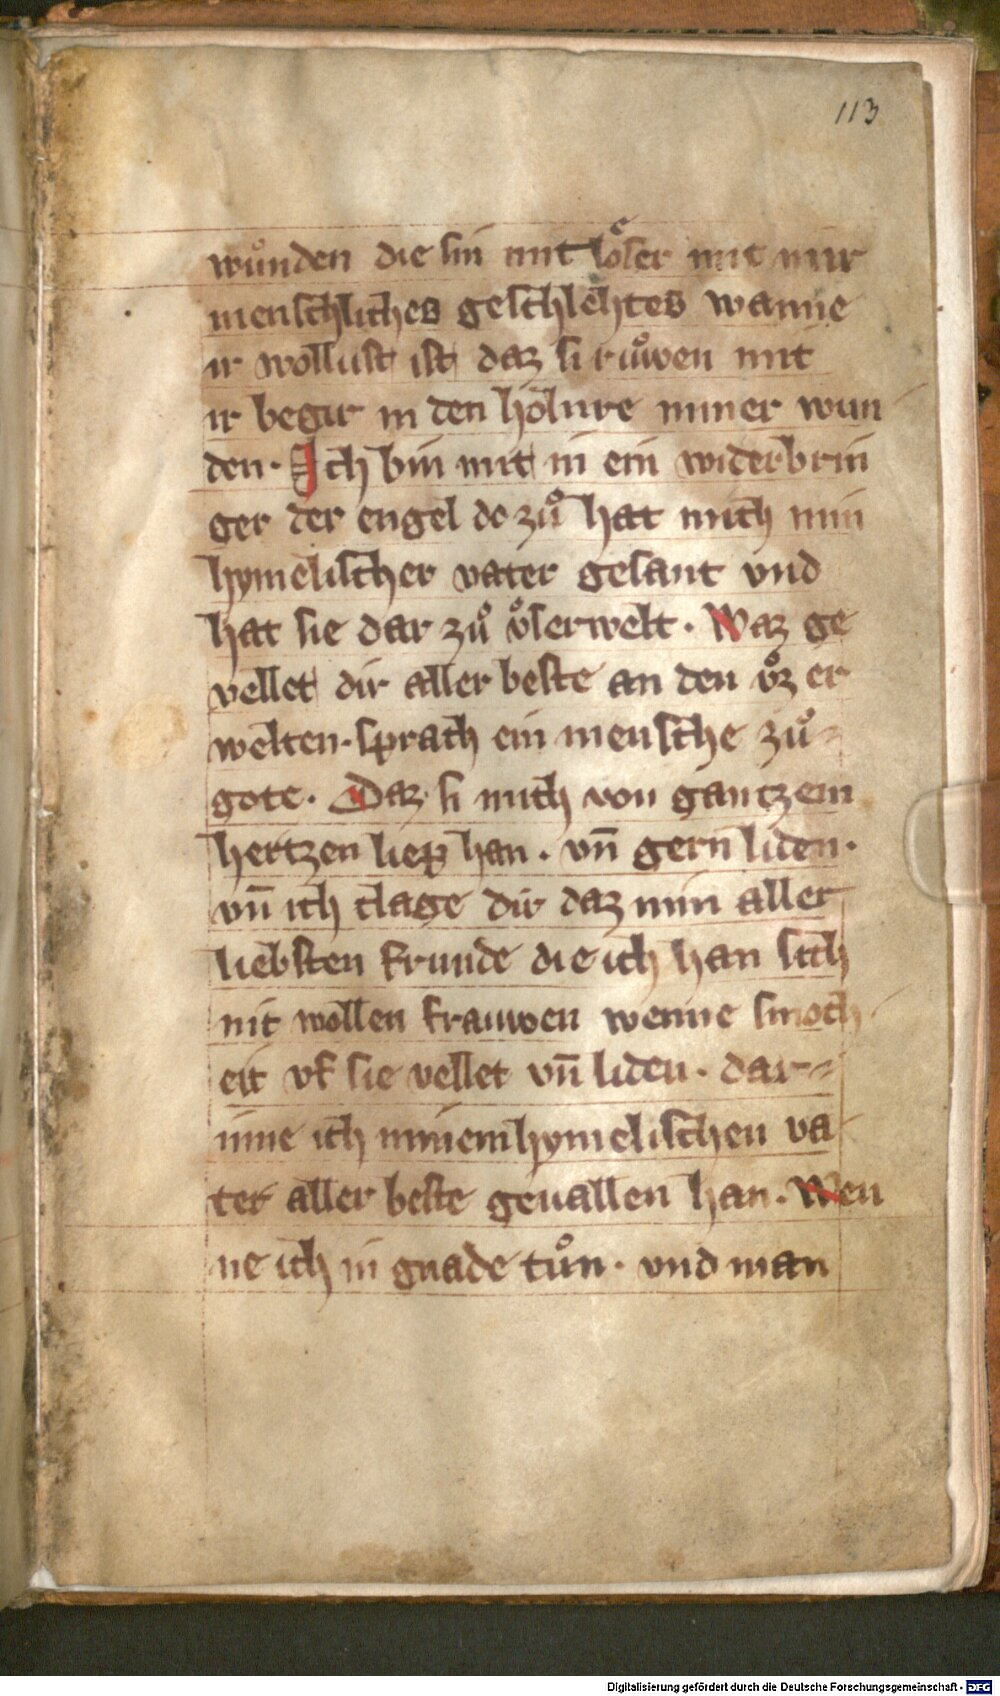 113
wůnden die sin mit loͤser mit mir
menschliches geschlehtes wanne
ir wollust ist daz si růwen mit
ir begir in den hölnire miner wun
den· Ich bin mit in ein widerbrin
ger der engel do zů hat mich min
hymelischer vater gesant vnd
hat sie dar zů v̊serwelt· Waz ge
vellet dir aller beste an den v̊z er
welten· sprach ein mensche zů
gote· Daz si mich von gantzem
hertzen liep han· vn̄ gern liden·
vn̄ ich clage dir daz min aller
liebsten frunde die ich han sich
nit wollen frauwen wenne smoch
eit vf sie vellet vn̄ liden· dar
inne ich minem hymelischen va
ter aller beste geuallen han· Wen
ne ich in gnade tůn· vnd man
Digitalisierung gefördert durch die Deutsche Forschungsgemeinschaft - DFG